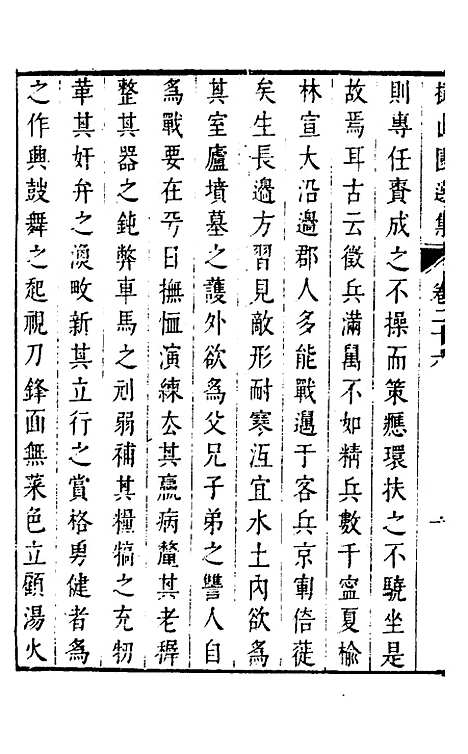 擬山園選集　卷二十六
則專任賚成之不操而策應環扶之不驍坐是
故焉耳古云徵兵滿萬不如精兵數千寧夏榆
林宣大沿邊郡人多能戰邁于客兵京軍倍蓰
矣生長邉方習見敵形耐寒冱宜水土內欲爲
其室廬墳墓之護外欲爲父兄子弟之讐人自
爲戰要在平日撫恤演練去其羸病釐其老穉
整其器之鈍弊車馬之刓弱補其糧犒之充牣
華其奸弁之漁畋新其立行之賞格勇健者爲
之作興鼓舞之起視刀鋒面無菜色立顧湯火